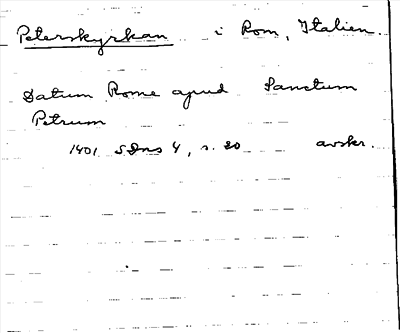 Peterskyrkan i Rom, Italien.
Datum Rome apud Sanctum
Petrum
1401 SDns 4, s. 20 avskr.